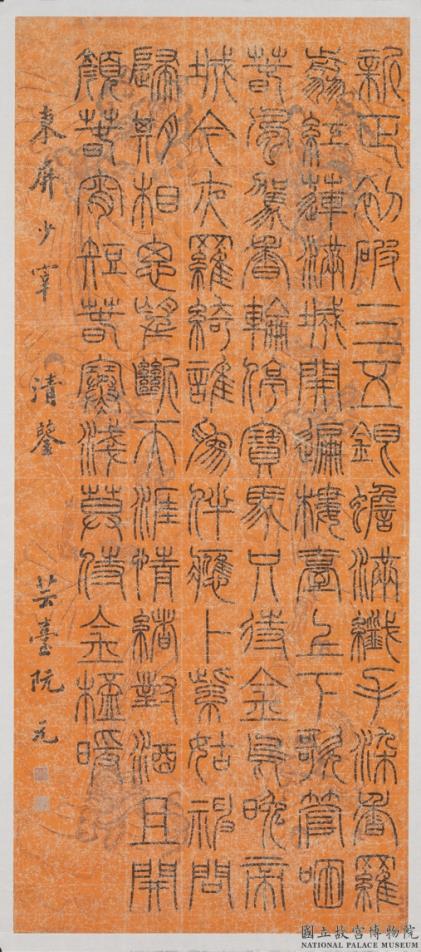 新正初破三五銀蟾滿纖手染香羅
翦紅蓮滿城開遍樓臺上下歌管咽
春風駕香輪停寶馬只待金烏晚帝
城今夜羅綺誰為伴應卜紫姑神問
歸期相思望斷天涯情緒對酒且開
顏春宵短春寒淺莫待金桮暖
東屏少宰 清鑒 芸臺阮元
國立故宮博物院
NATIONAL PALACE MUSEUM